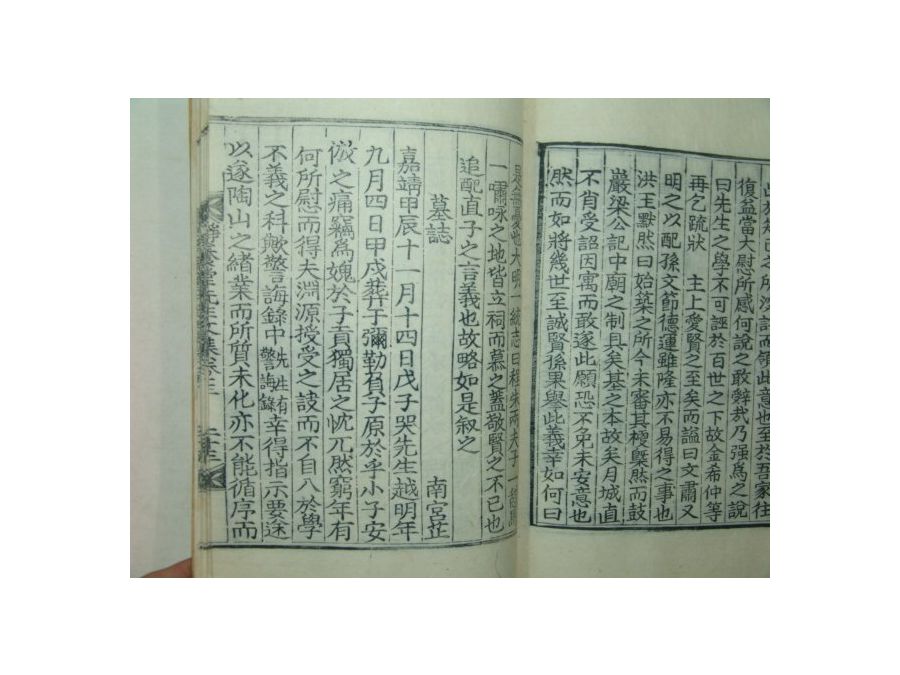 此於知己之所深許而領此意也至於吾家往
復益當大慰所感何說之敢辭哉乃强爲之說
曰先生之學不可誣於百世之下故金希仲等
再乞疏狀 主上愛賢之至矣而謚曰文肅又
明之以配孫文節德運雖隆亦不易得之事也
洪王默然曰始築之所今未審其極槩然而鼓
巖梁公記中廟之制具矣基之本故矣月城直
不肖受詔因寓而敢遂此願恐不免未安意也
然而如將幾世至誠賢孫果舉此義幸如何曰
是無憂也大明一統志曰程朱兩夫子一
一嘯咏之地皆立祠而慕之蓋敬賢之不已也
追配直子之言義也故略如是叙之
墓誌 南宮芷
嘉靖甲辰十一月十四日戊子哭先生越明年
九月四日甲戌葬于彌勒負子原於乎小子安
倣之痛竊爲媿於子貢獨居之忱兀然窮年有
何所慰而得夫淵源授受之訣而不自入於學
不義之科歟警誨錄中 先姓有警誨錄 幸得指示要途
以遂陶山之緖業而所質未化亦不能循序而
先生文集卷之三